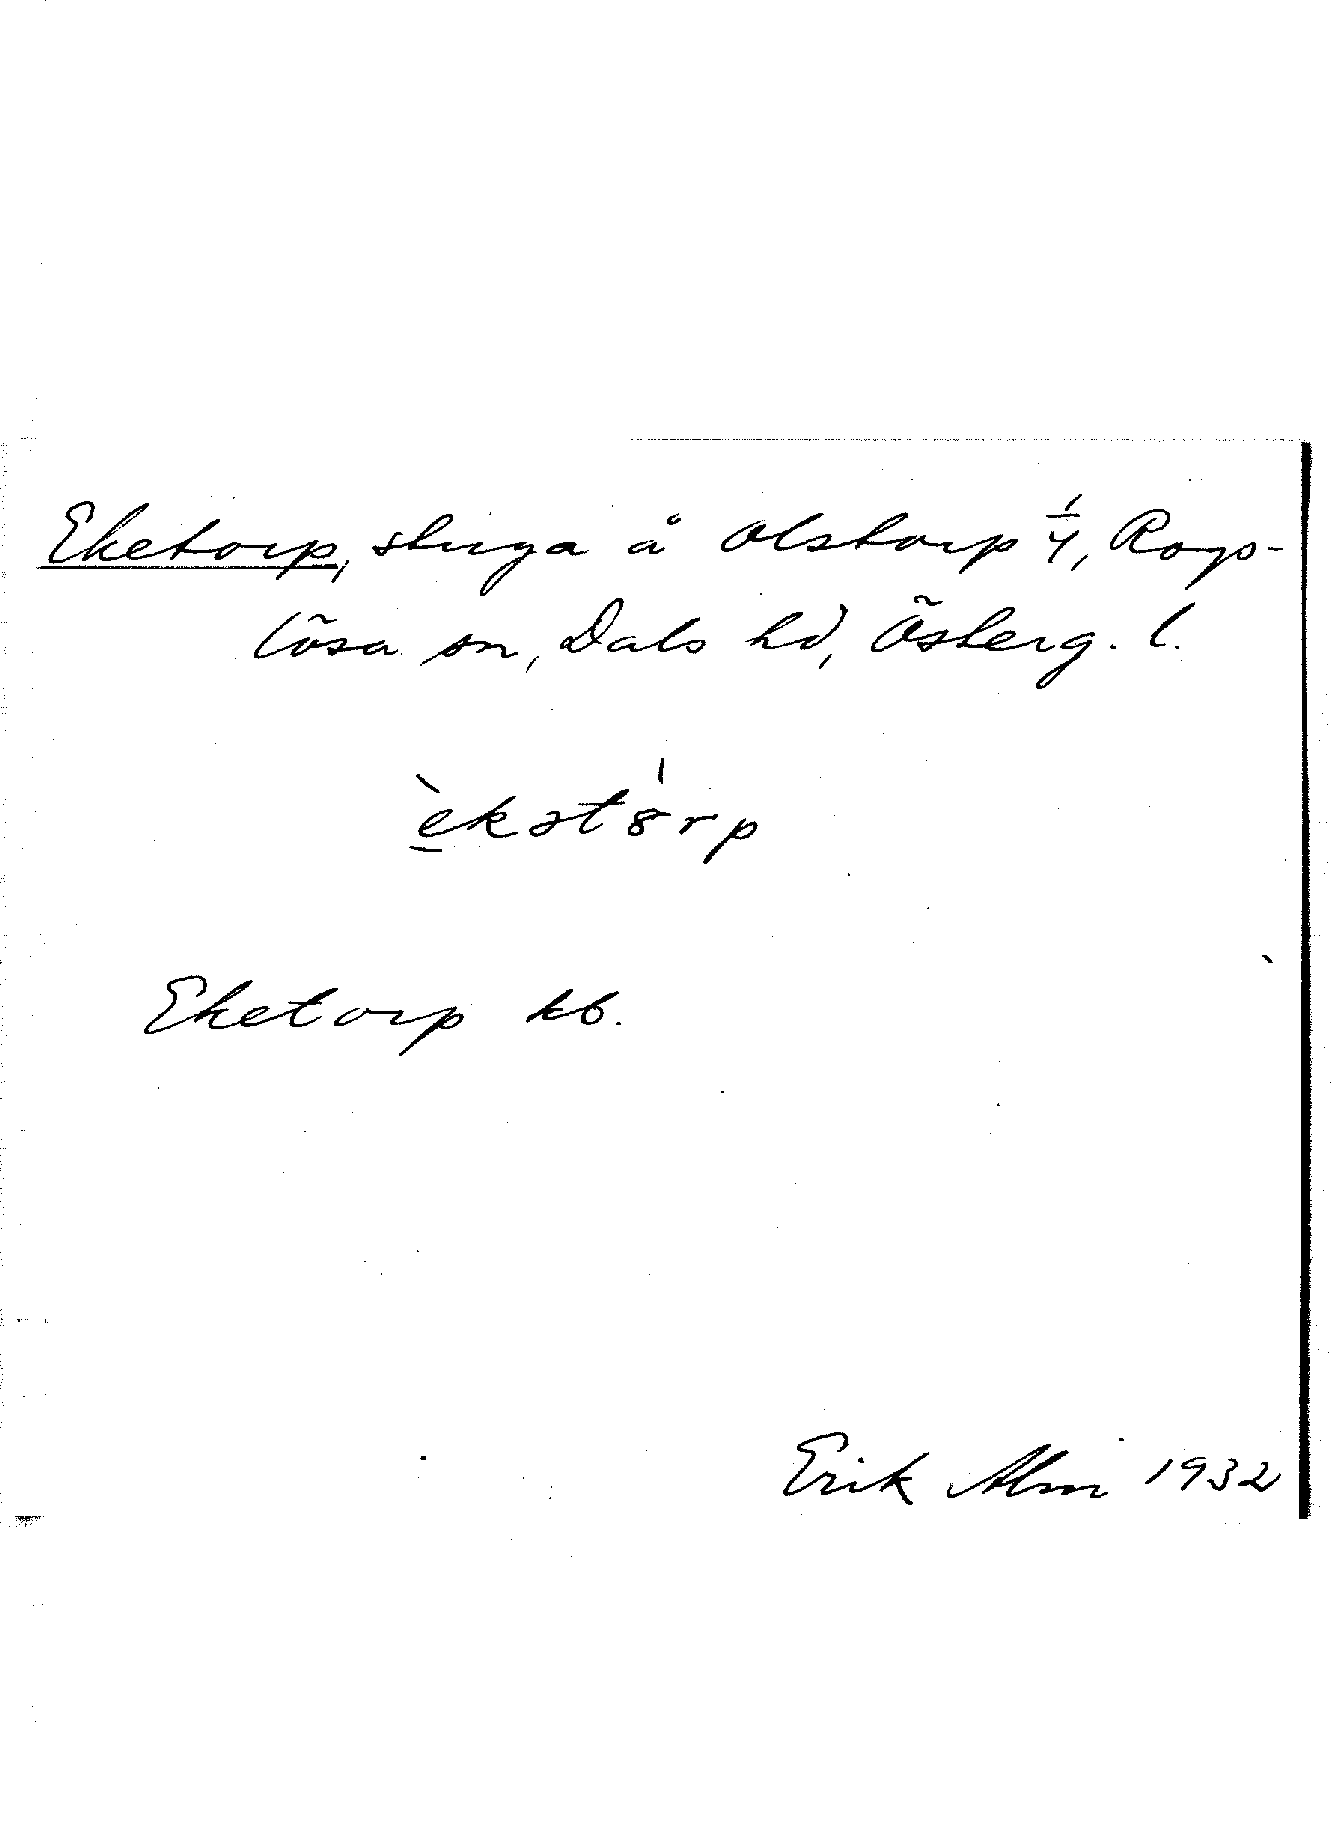 Eketorp, stuga å Olstorp 1/4, Rogs-
lösa sn, Dals hd, Österg. l.
èkstórp
Eketorp kb.
Erik Alm 1932